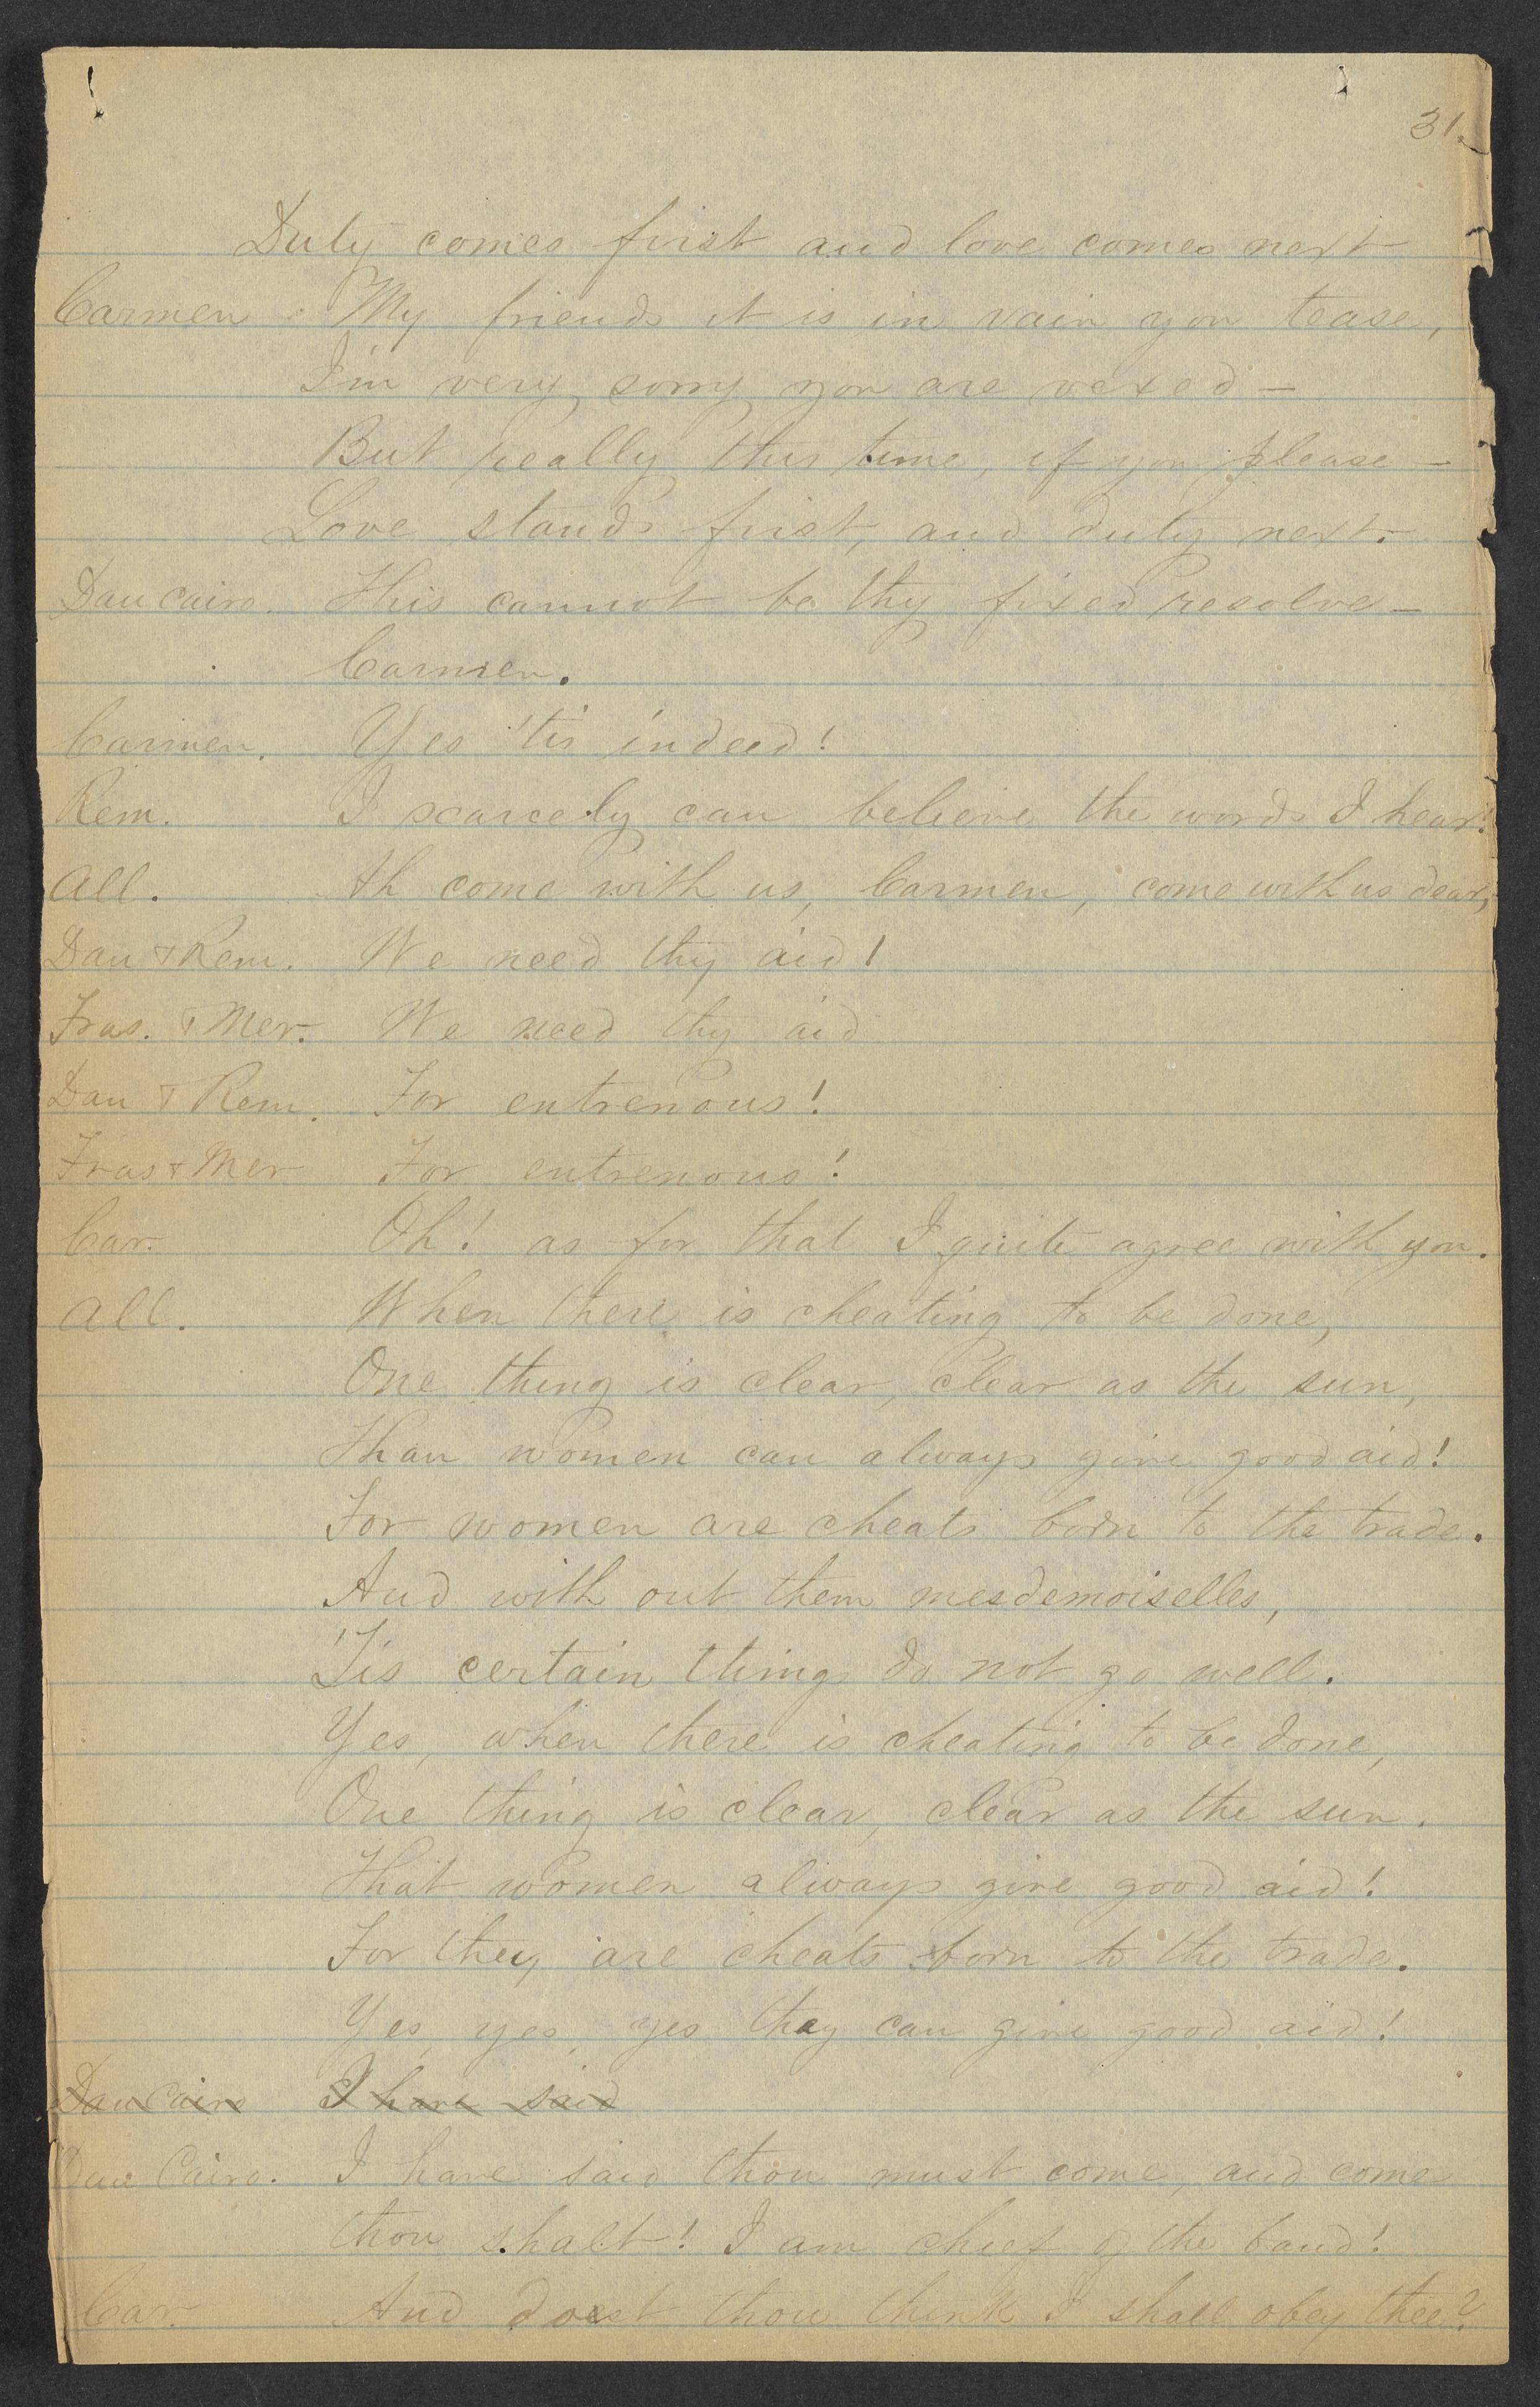 31.
Duty comes first and love comes next
Carmen. My friends it is in vain you tease,
I'm very sorry you are vexed —
But really this time, if you please —
Love stands first, and duty next.
Dan Cairo. This cannot be thy fixed resolve —
Carmen.
Carmen. Yes 'tis indeed!
Rem. I scarcely can believe the words I hear!
All. Ah come with us, Carmen, come with us dear,
Dan & Rem. We need thy aid!
Fras. & Mer. We need thy aid
Dan & Rem. For entrenous!
Fras & Mer For entrenous!
Car. Oh! as for that I quite agree with you.
All. When there is cheating to be done,
One thing is clear, clear as the sun,
Than women can always give good aid!
For women are cheats born to the trade.
And with out them mesdemoiselles,
'Tis certain things do not go well.
Yes, when there is cheating to be done,
One thing is clear, clear as the sun.
That women always give good aid!
For they are cheats born to the trade.
Yes, yes, yes they can give good aid!
Dan Cairo I have said
Dan Cairo. I have said thou must come, and come
thou shalt! I am chief of the band!
Car. And doest thou think I shall obey thee?